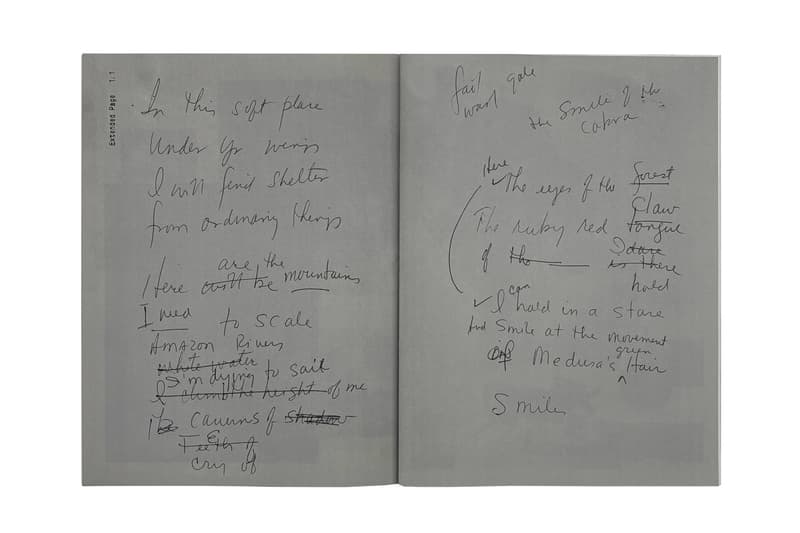 Extended Page 1.1
In this soft place
Under yr wings
I will find shelter
from ordinary things
are the
Here will be mountains
I need to scale
Amazon Rivers
white water
I'm dying to sail
I climb the height of me
The Caverns of shadow
Teeth of
cry of
fail
want
the Smile of the
Cobra
Here
The eyes of the forest
Claw
The ruby red tongue
of the I dare
is there
hold
can
I hold in a stare
And smile at the movement
green
of Medusa's Hair
Smile